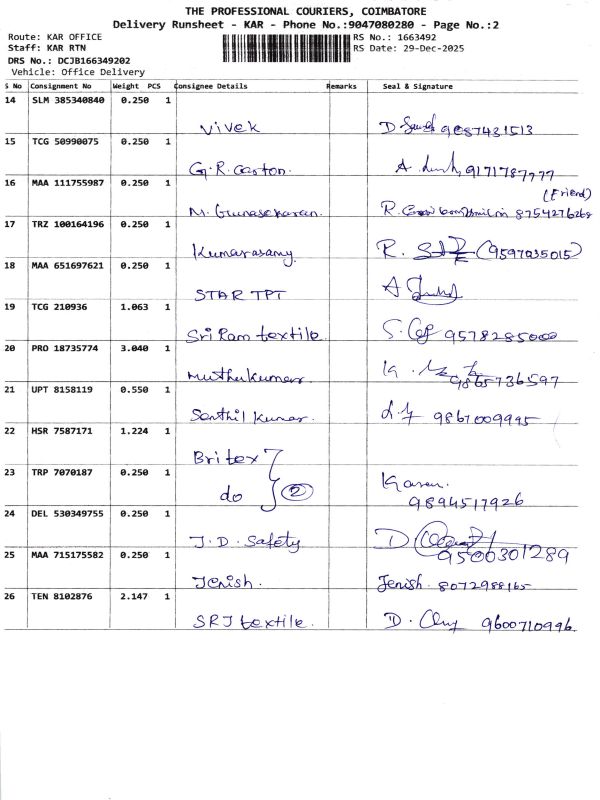 THE PROFESSIONAL COURIERS, COIMBATORE
Delivery Runsheet - KAR - Phone No.:9047080280 - Page No.:2
Route: KAR OFFICE RS No.: 1663492
Staff: KAR RTN RS Date: 29-Dec-2025
DRS No.: DCJB166349202
Vehicle: Office Delivery
S No Consignment No Weight PCS Consignee Details Remarks Seal & Signature
14 SLM 385340840 0.250 1
Vivek 9087431513
15 TCG 50990075 0.250 1
G.R. Carton. 9171787777
16 MAA 111755987 0.250 1
(Friend)
M. Gunasekaran. 8754276268
17 TRZ 100164196 0.250 1
Kumarasamy. R. (9597035015)
18 MAA 651697621 0.250 1
STAR TPT
19 TCG 210936 1.063 1
Sri Ram textile. 9578285000
20 PRO 18735774 3.040 1
Muthukumar. 9865736597
21 UPT 8158119 0.550 1
Senthil Kumar. 9867009995
22 HSR 7587171 1.224 1
Britex
23 TRP 7070187 0.250 1
do 2 Karan.
9894517926
24 DEL 530349755 0.250 1
J.D. Safety 9500301289
25 MAA 715175582 0.250 1
Jenish. Jenish. 8072988165
26 TEN 8102876 2.147 1
SRJ textile. D. 9600710996